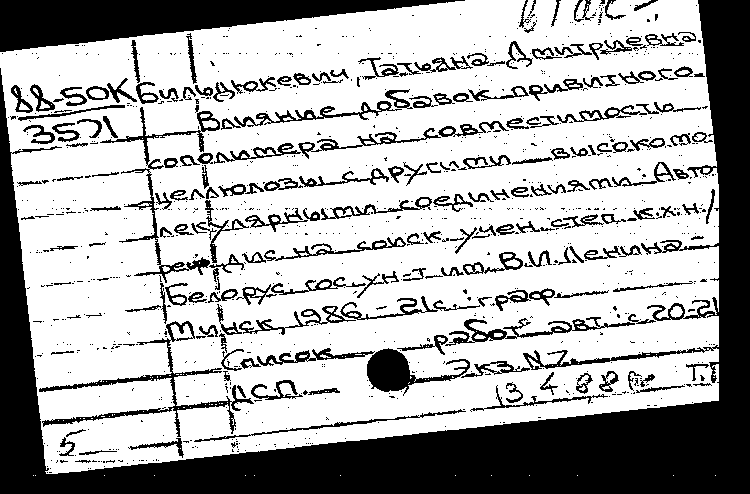 88-50К
3571
Бильдюкевич, Татьяна Дмитриевна.
Влияние добавок привитного
сополимера на совместимость
целлюлозы с другими высокомо-
лекулярными соединениями: Авто-
реф. дис. на соиск. учен. степ. к.х.н./
Белорус. гос. ун-т им. В.И. Ленина.-
Минск, 1986.- 21с.: граф.
Список работ авт.: с 20-21
ДСП. Экз. N 7.
13.4.88
5